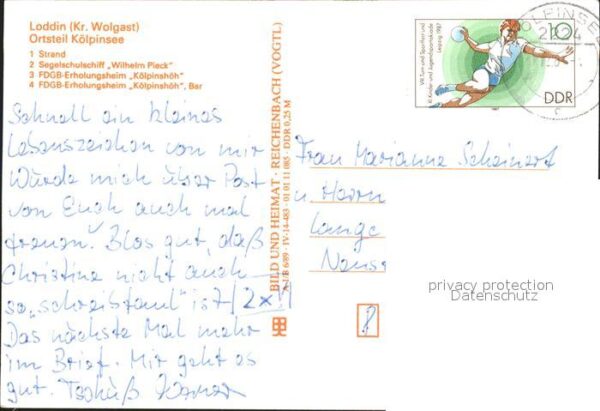 Loddin (Kr. Wolgast)
Ortsteil Kölpinsee
1 Strand
2 Segelschulschiff „Wilhelm Pieck"
3 FDGB-Erholungsheim „Kölpinshöh"
4 FDGB-Erholungsheim „Kölpinshöh", Bar
Schnell ein kleines
Lebenszeichen von mir
Würde mich über Post
von Euch auch mal
freuen. Blos gut, daß
Christina nicht auch
so „schreibfaul" is 7/2x
Das nächste Mal mehr
im Brief. Mir geht es
gut. Tschüß
BILD UND HEIMAT · REICHENBACH (VOGTL)
6/89 · IV-14-483 · 01 01 11 085 · DDR 0,25 M
VIII. Turn- und Sportfest und
XI. Kinder- und Jugendspartakiade
Leipzig 1987
10
DDR
KÖLPINSEE
2224
c
Frau Marianne Scheinert
u. Herrn
Lange
privacy protection
Datenschutz